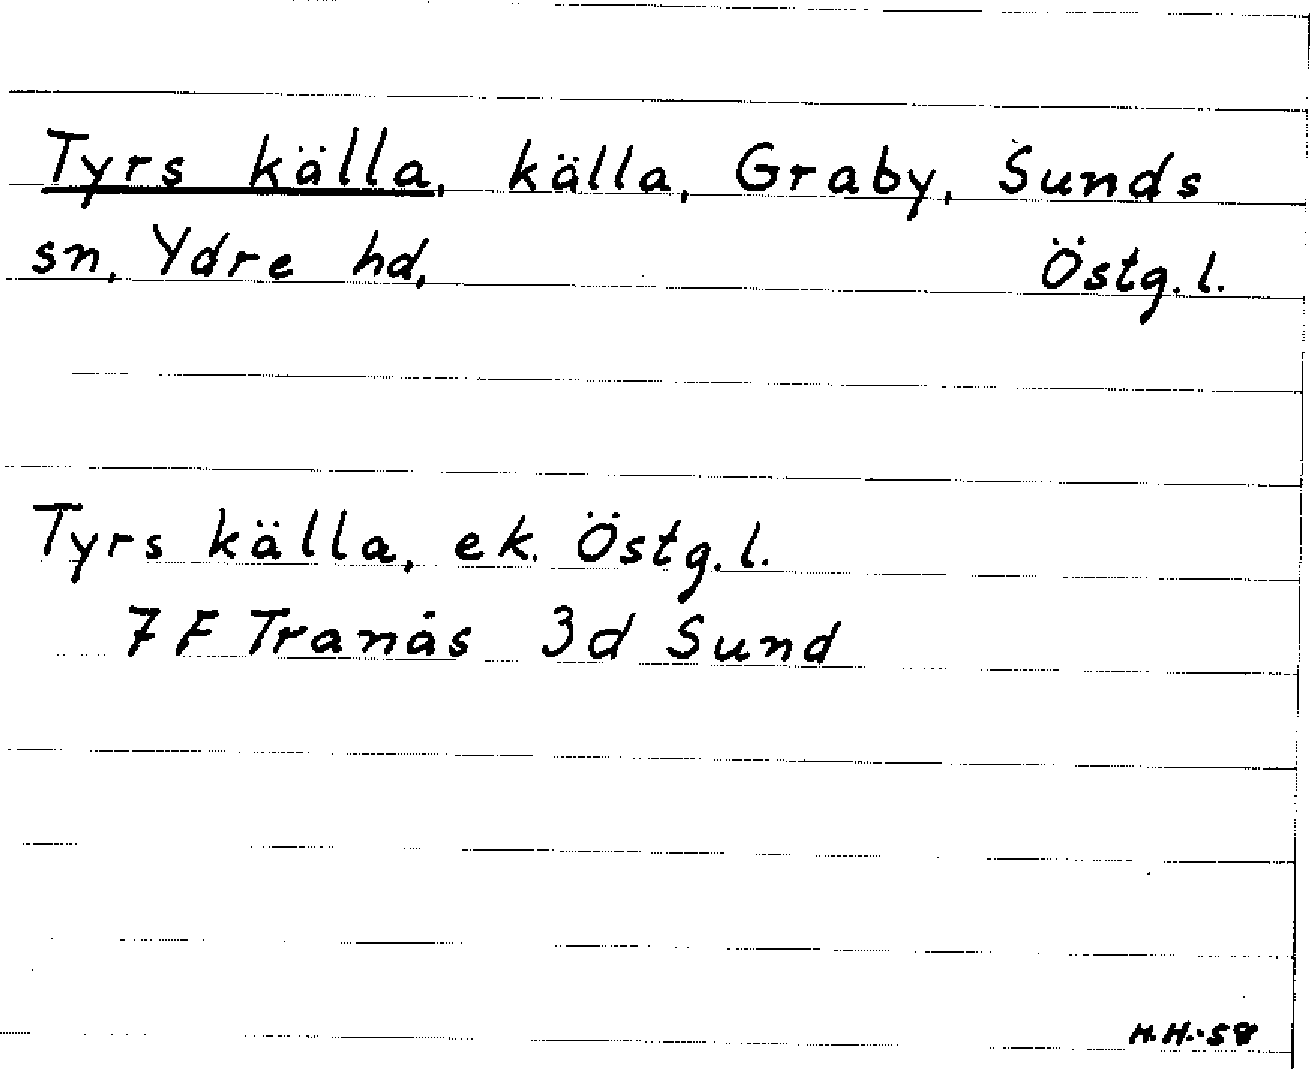 Tyrs källa, källa, Graby, Sunds
sn, Ydre hd, Östg.l.
Tyrs källa, ek. Östg.l.
7 F Tranås 3d Sund
H.H.-58